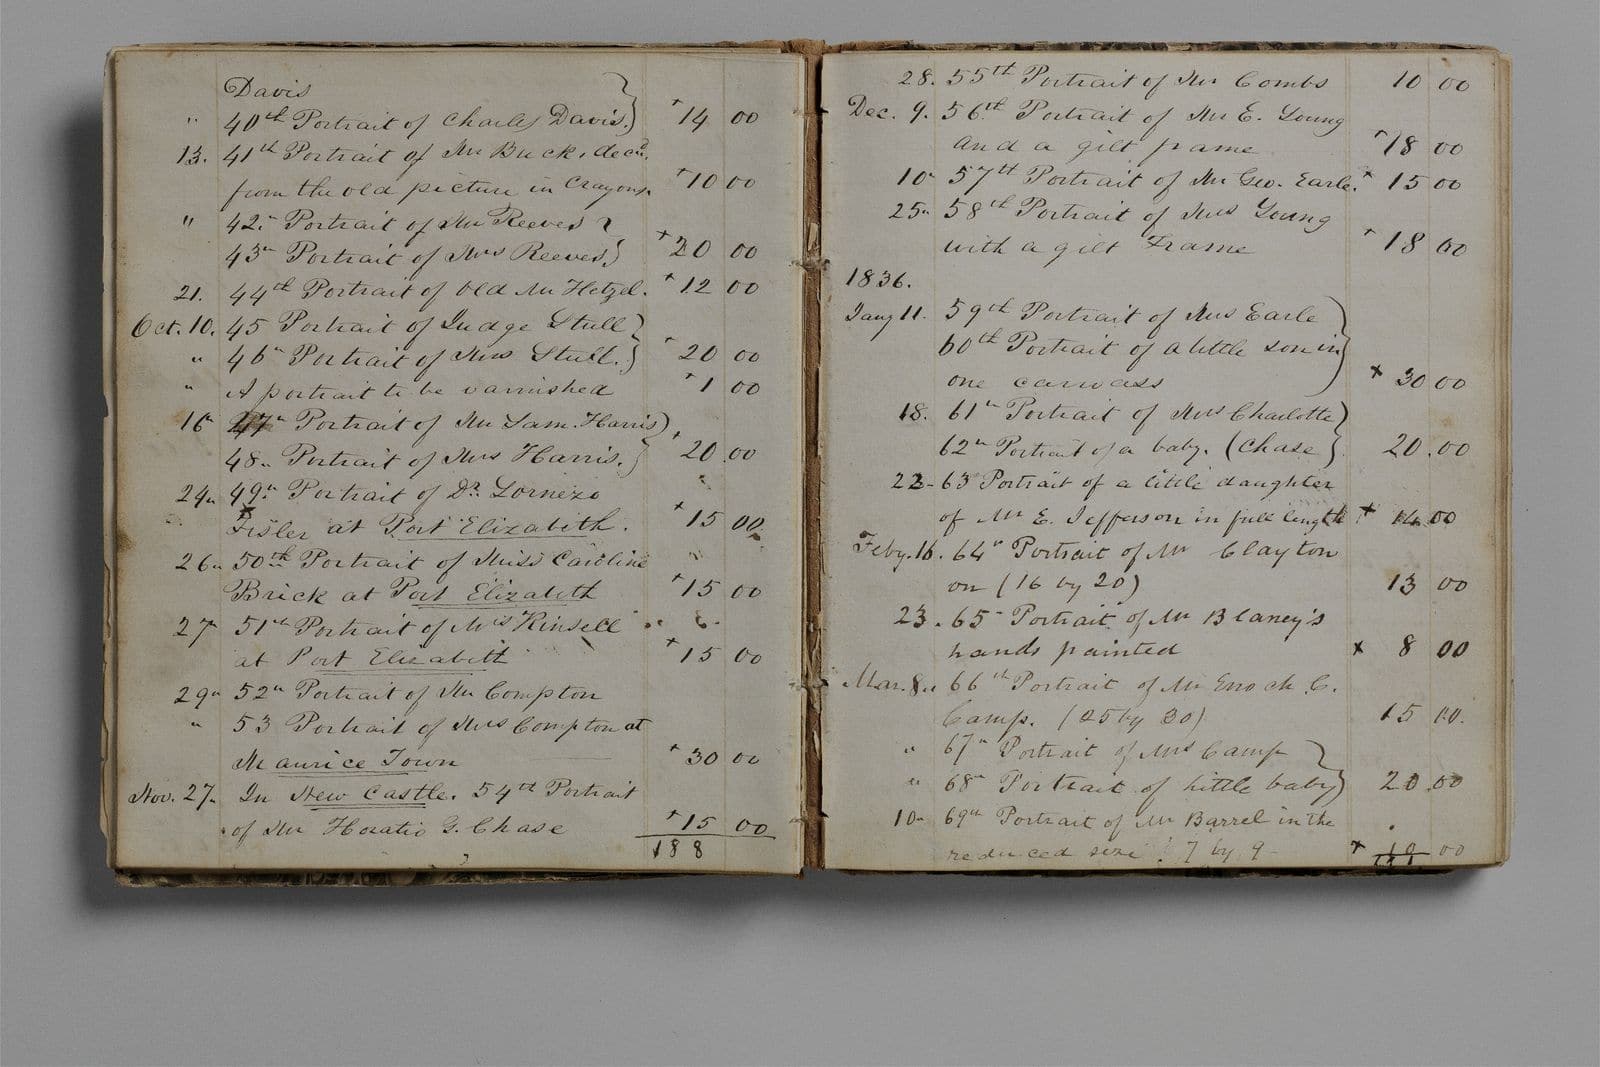 Davis
" 40th Portrait of Charles Davis. + 14 00
13. 41th Portrait of Mr Buck, decd.
from the old picture in Crayons. + 10 00
" 42" Portrait of Mr Reeves
43" Portrait of Mrs Reeves + 20 00
21. 44th Portrait of Old Mr Hetzel. + 12 00
Oct. 10. 45 Portrait of Judge Stull
" 46" Portrait of Mrs Stull. 20 00
" A portrait to be varnished + 1 00
16 47" Portrait of Mr Sam. Harris
48" Portrait of Mrs Harris. + 20.00
24" 49" Portrait of Dr
Fisler at Port Elizabeth. + 15 00
26" 50th Portrait of Miss Caroline
Brick at Port Elizabeth + 15 00
27 51th Portrait of Mrs Kinsell
at Port Elizabeth + 15 00
29" 52" Portrait of Mr Compton
" 53 Portrait of Mrs Compton at
Maurice Town + 30 00
Nov. 27" In New Castle. 54th Portrait
of Mr Horatio G. Chase + 15 00
188
28. 55th Portrait of Mr Combs 10 00
Dec. 9. 56th Portrait of Mr E. Young
and a gilt frame + 18 00
10" 57th Portrait of Mr Geo. Earle. × 15 00
25" 58th Portrait of Mrs Young
with a gilt Frame 18 00
1836.
Jany 11. 59th Portrait of Mrs Earle
60th Portrait of a little son in
one canvass × 30 00
18. 61" Portrait of Mrs Charlotte
62" Portrait of a baby. (Chase 20.00
22- 63 Portrait of a little daughter
of Mr E. Jefferson in full length × 14 00
Feby. 16. 64" Portrait of Mr Clayton
on (16 by 20) 13 00
23. 65 Portrait of Mr Blaney's
hands painted × 8 00
Mar. 8" 66th Portrait of Mr Enoch C.
Camp. (25 by 30) 15 00.
" 67" Portrait of Mrs Camp
" 68" Portrait of little baby 20.00
10" 69th Portrait of Mr Barrel in the
reduced size 7 by 9 × 10 00